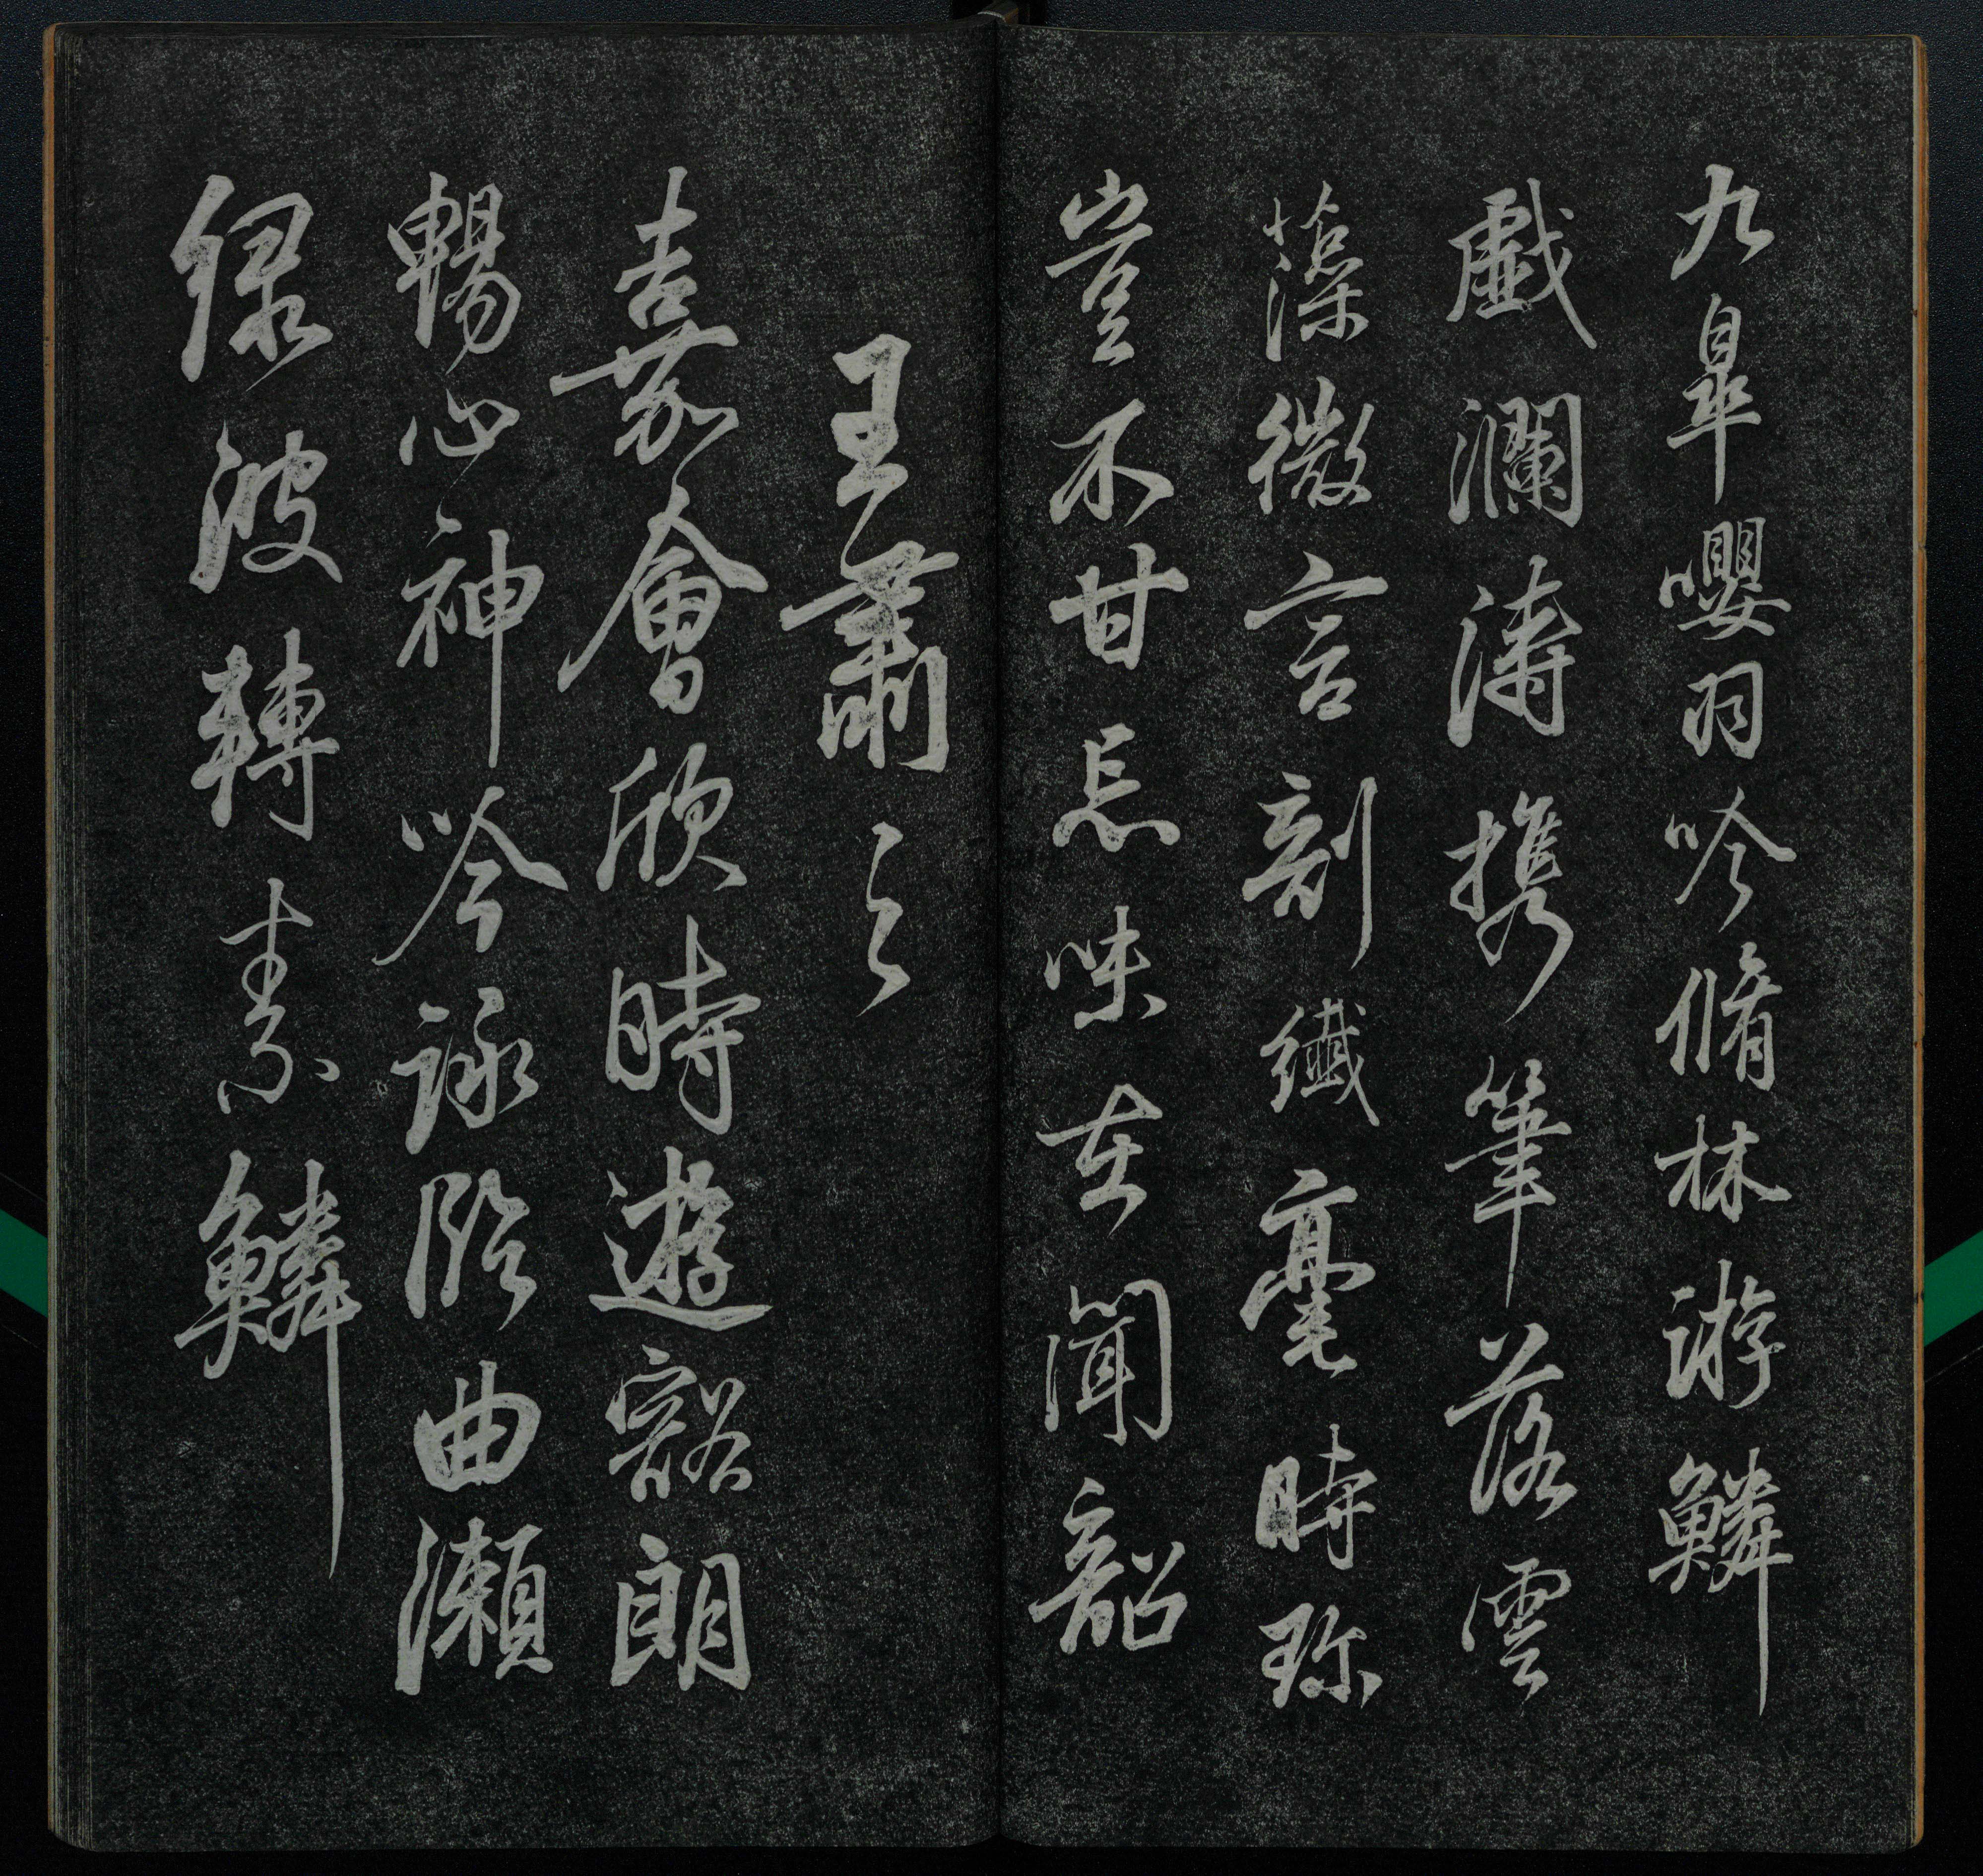 九皐嚶羽吟脩林游鱗
戲瀾濤携筆落雲
藻微言剖纖毫時珎
豈不甘忘味在聞韶
王肅之
嘉會欣時遊豁朗
暢心神吟詠臨曲瀨
渌波轉素鱗